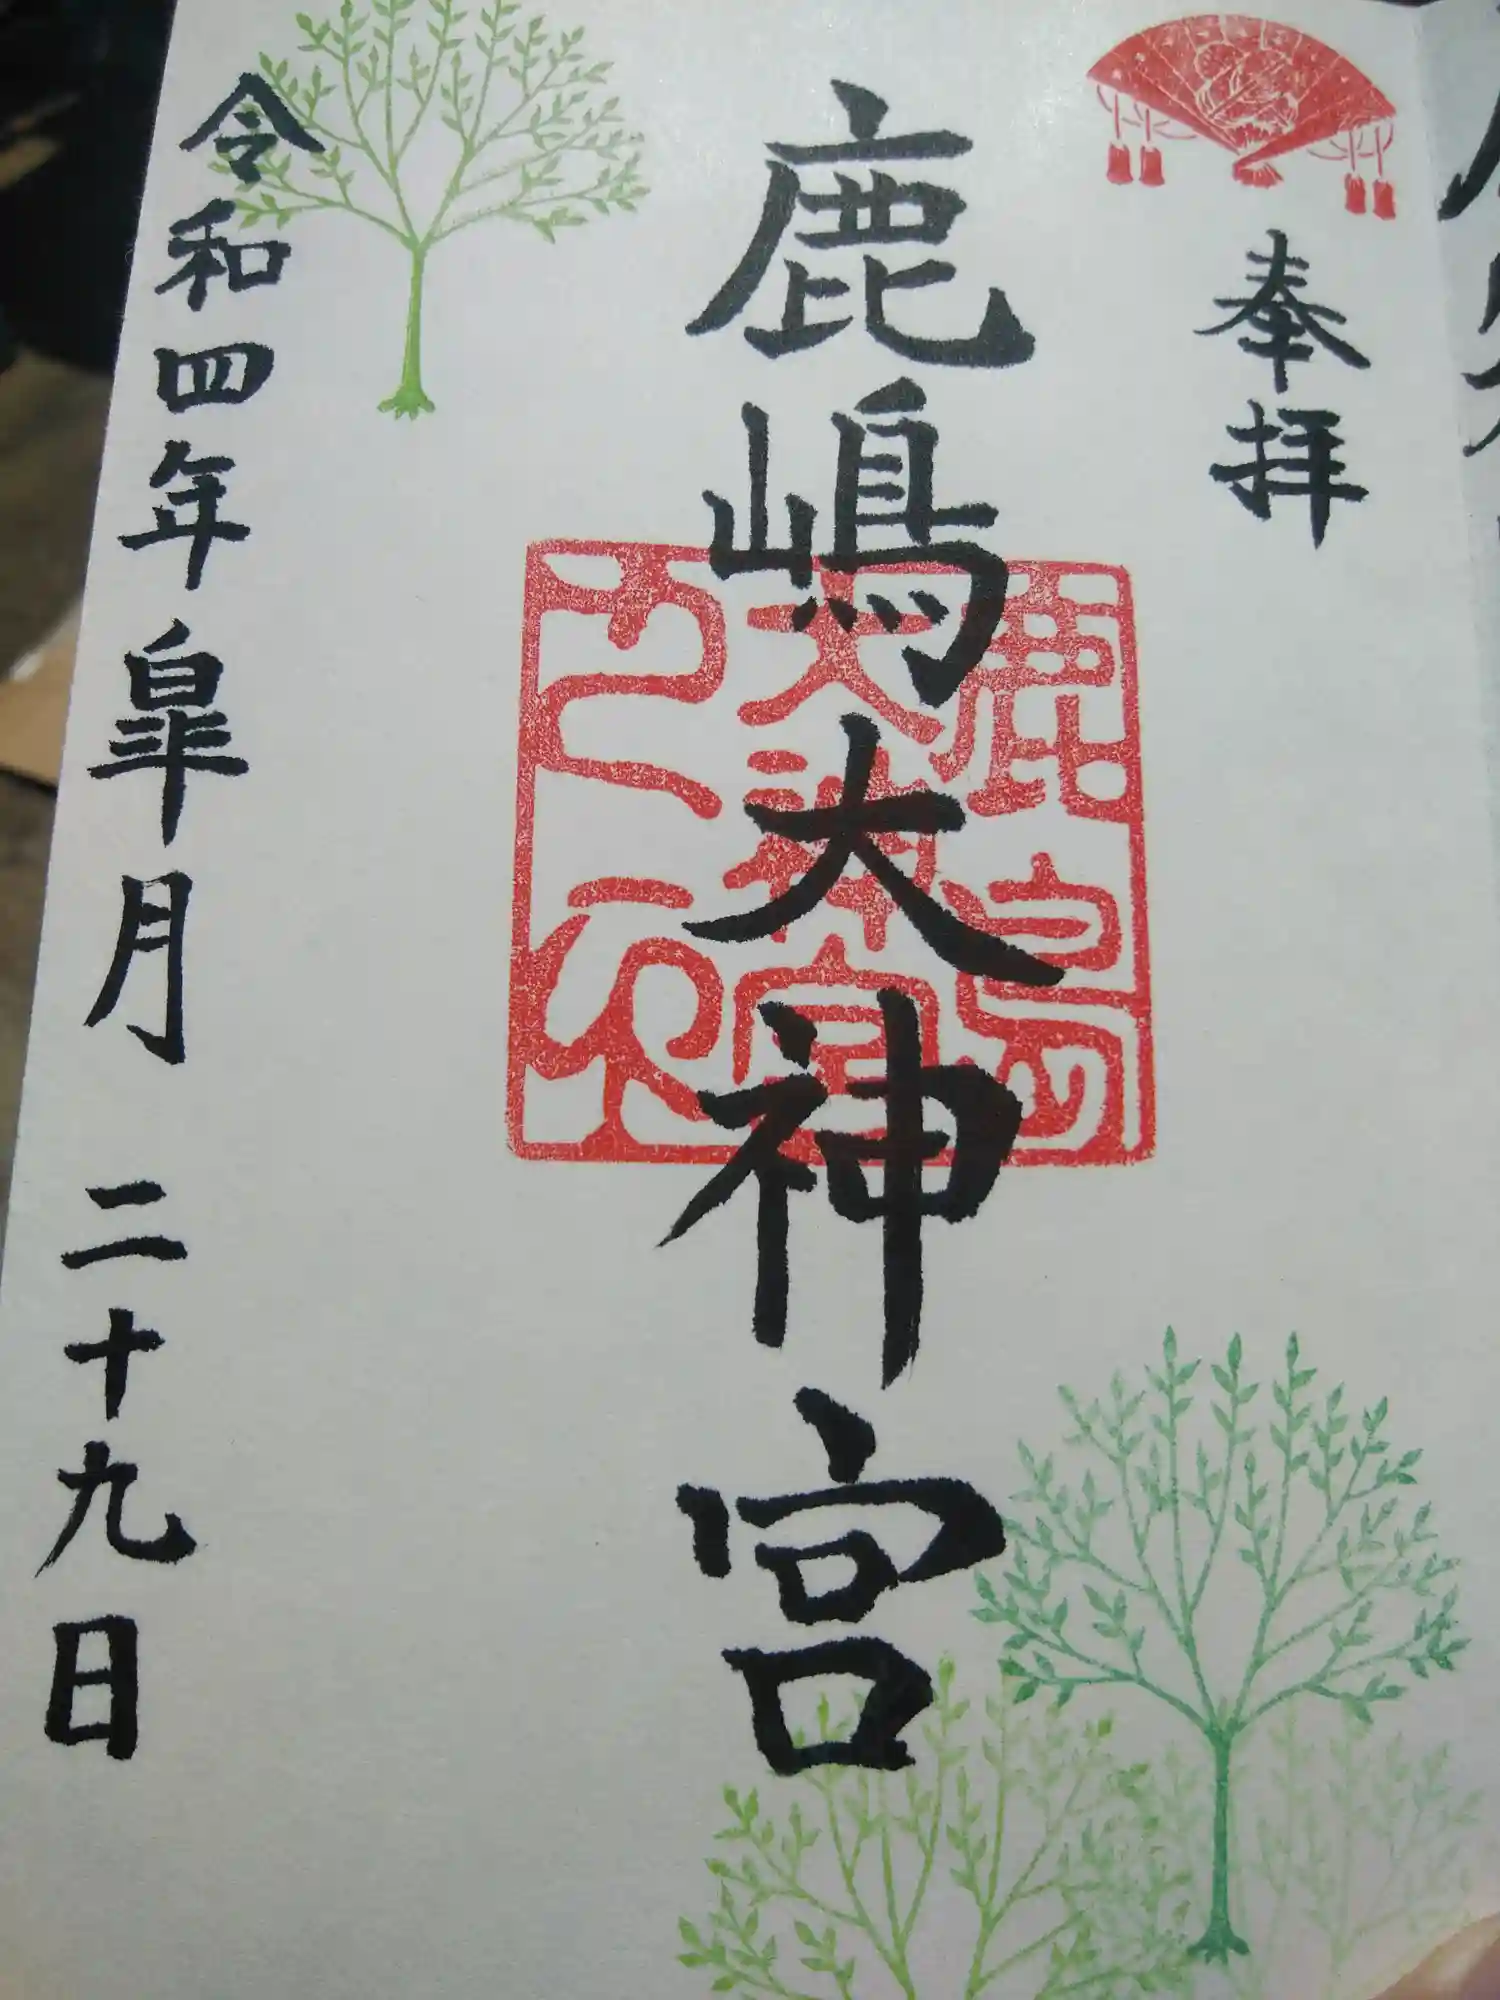 奉拝
鹿嶋大神宮
鹿島
大神宮
令和四年皐月二十九日